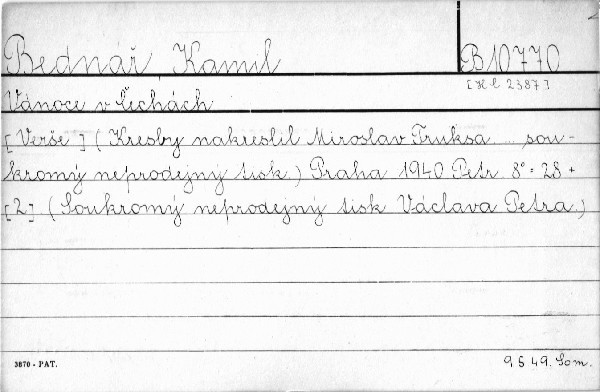 Bednář Kamil B 10770
[H l 2387]
Vánoce v Čechách
[Verše] (Kresby nakreslil Miroslav Truksa ... sou-
kromý neprodejný tisk.) Praha 1940 Petr. 8° = 28 +
[2] (Soukromý neprodejný tisk Václava Petra.)
3870 - PAT. 9.5 49. Som.